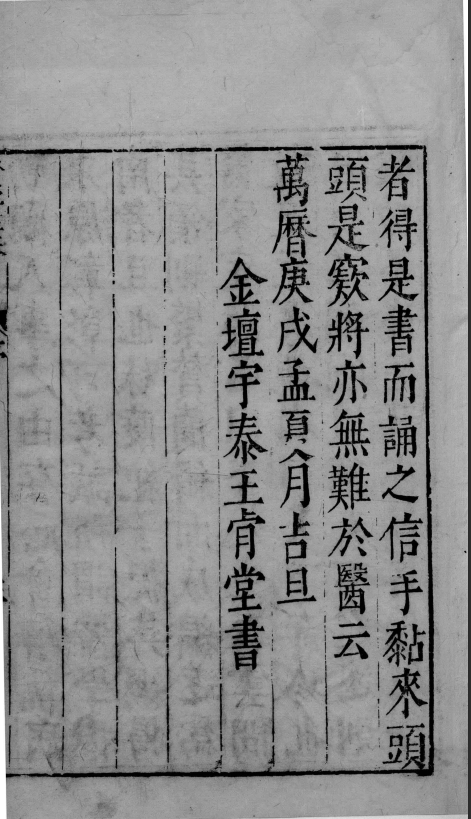 者得是書而誦之信手黏來頭
頭是竅將亦無難於醫云
萬曆庚戌孟夏月吉旦
金壇宇泰王肯堂書